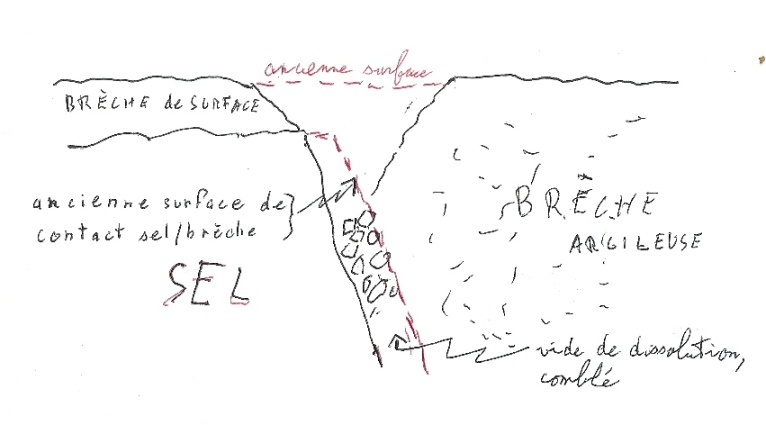 ancienne surface
BRÈCHE de SURFACE
ancienne surface de
contact sel/brèche
SEL
BRÈCHE
ARGILEUSE
vide de dissolution,
comblé